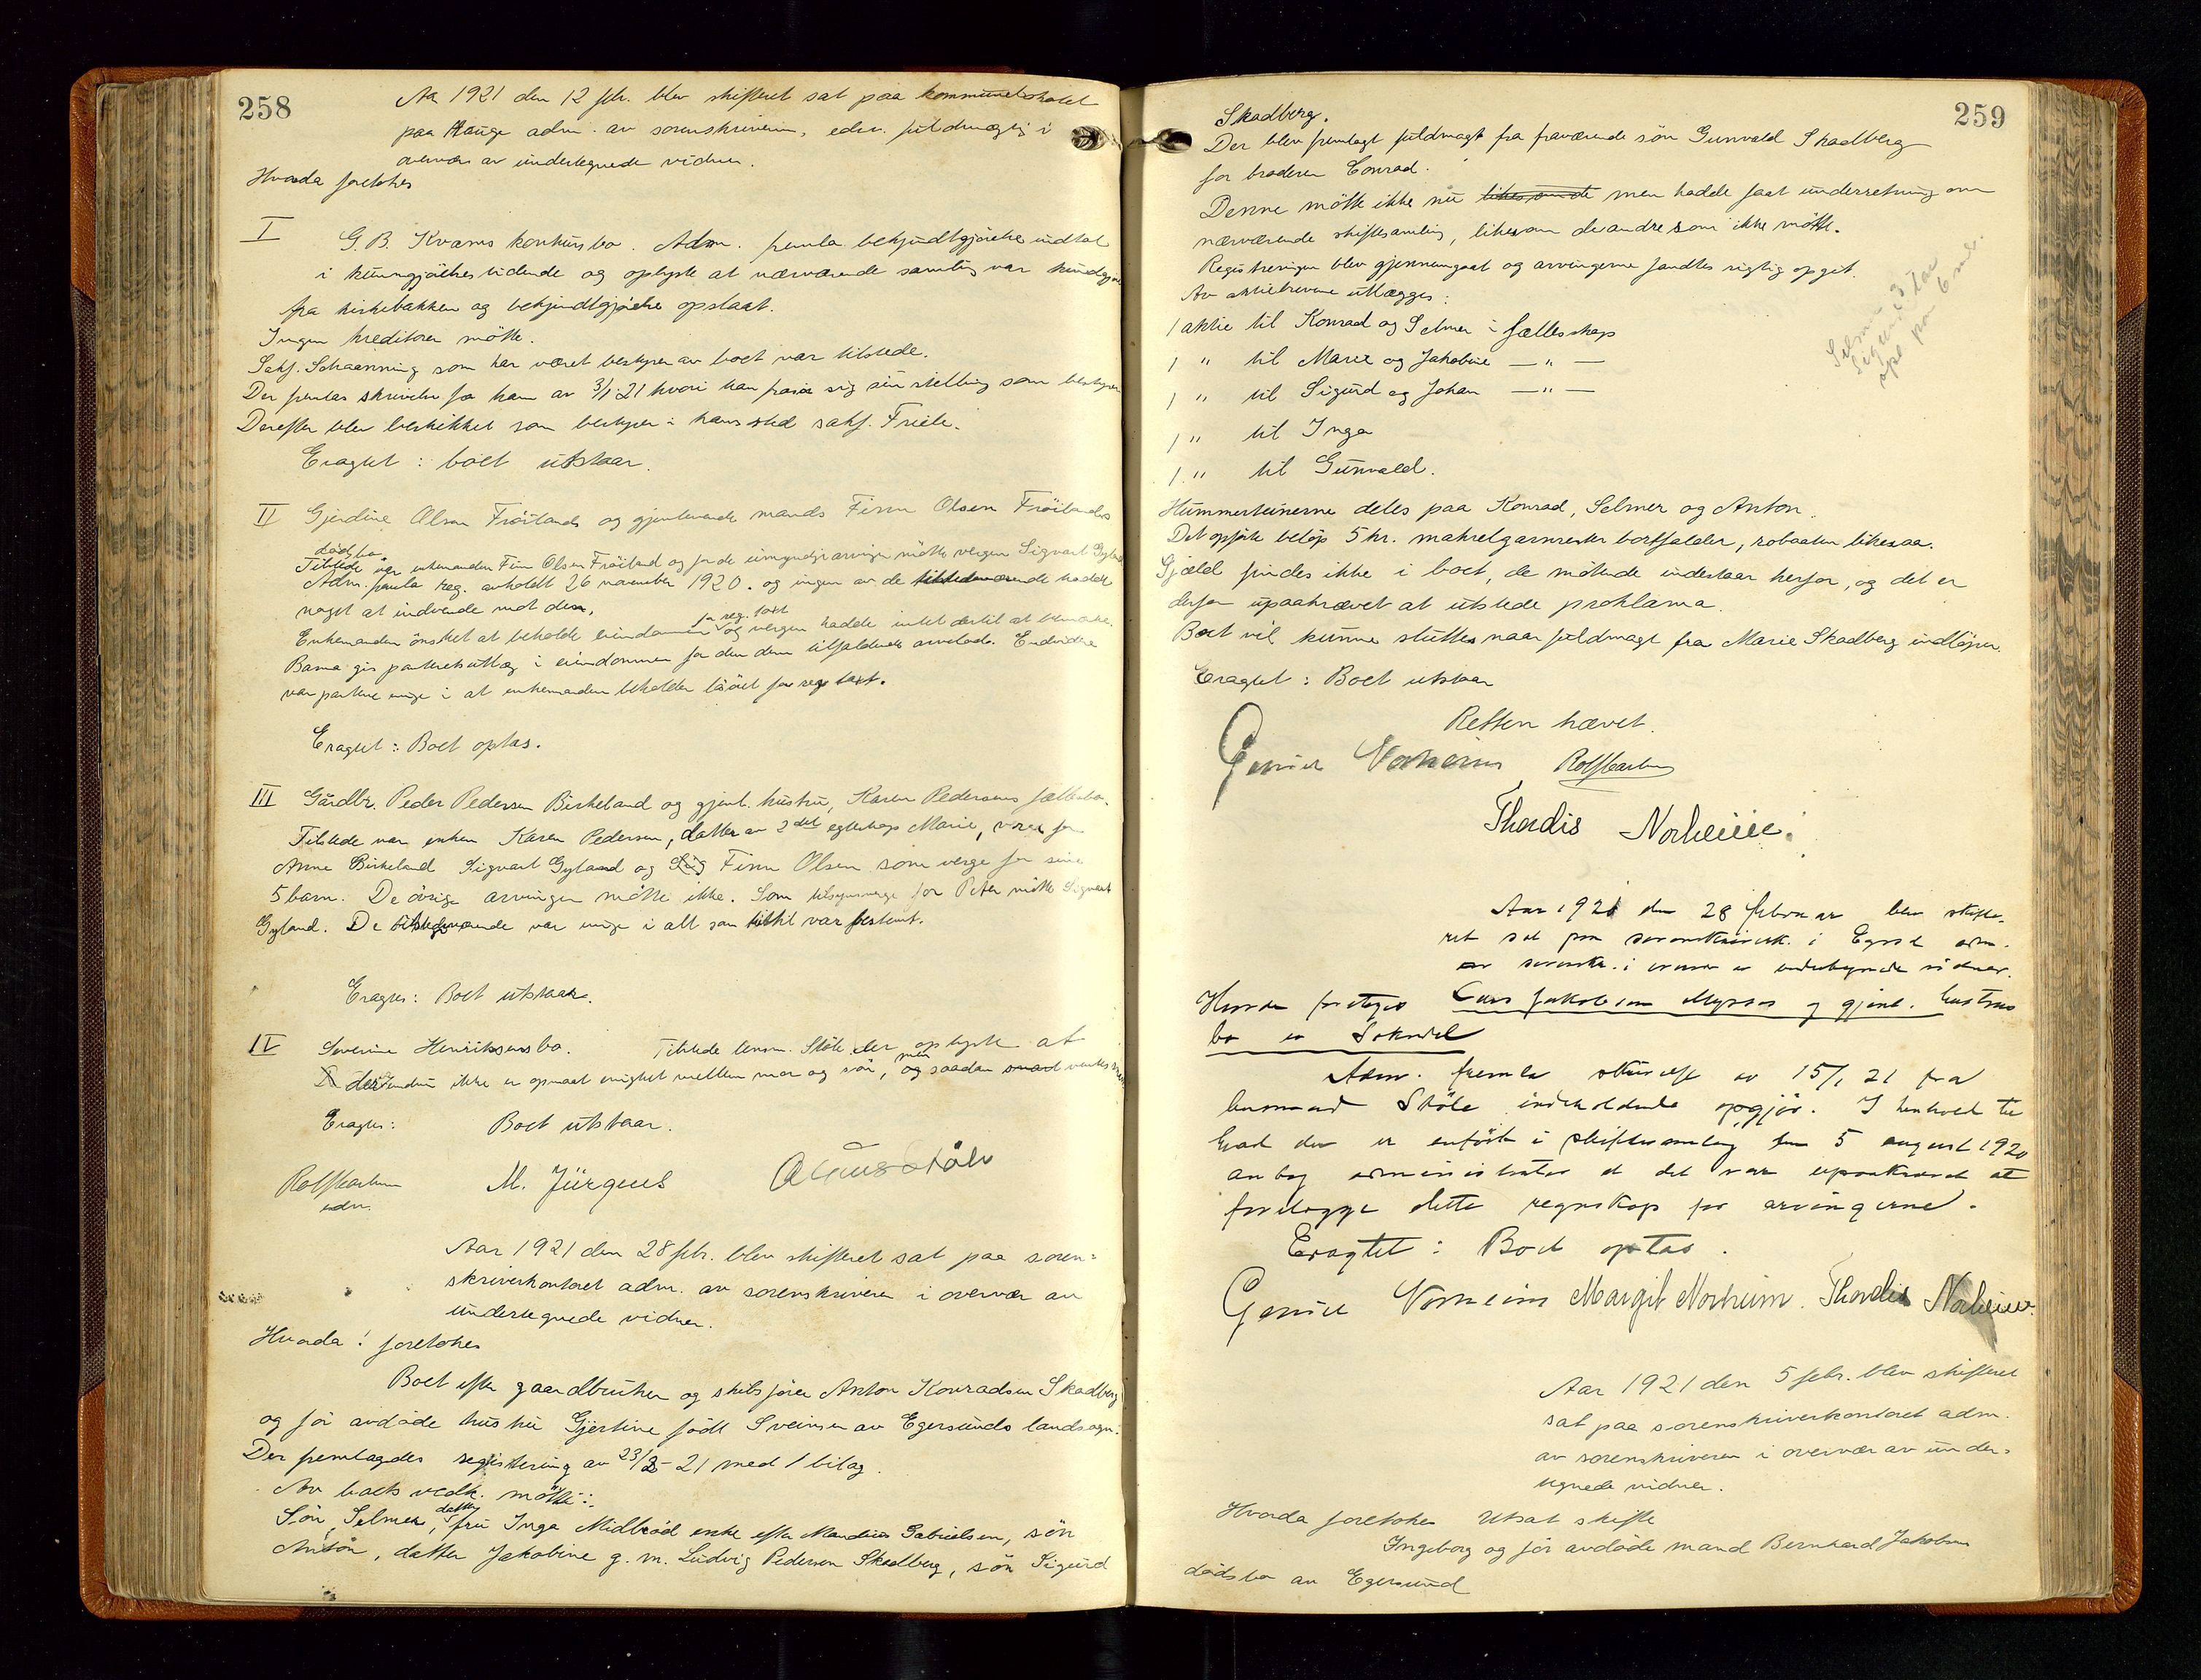 258
Aar 1921 den 12 febr. blev skifteret sat paa kommunelokalet
paa Hauge adm. av sorenskriveren, edsv. fuldmægtig i
overvær av undertegnede vidner.
Hvorda foretokes
I
G. B. Kvams konkursbo. Adm. fremla bekjendtgjørelse indtat
i kundgjørelsestidende og oplyste at nærværende samling var kundgjort
fra kirkebakken og bekjendtgjørelse opslaat.
Ingen kreditorer mötte.
Sakf. Schaanning som har været bestyrer av boet var tilstede.
Der fremlas skrivelse fra ham av 3/1 21 hvori han frasa sig sin stilling som bestyrer
Derefter blev beskikket som bestyrer i hans sted sakf. Friele.
Eragtet: boet utstaar.
II Gjerdine Olsen Fröitlands og gjenlevende mands Finn Olsen Fröitlands
dödsbo.
Tilstede var enkemanden Finn Olsen Fröitland og for de umyndige arvinger mötte vergen Sigvart Gyland
Adm. fremla reg. avholdt 26 november 1920. og ingen av de tilstedeværende hadde
noget at indvende mot den,
Enkemanden önsket at beholde eiendommen for reg. taxt og vergen hadde intet dertil at bemerke.
Barna gis panteretsutlæg i eiendommen for den dem tilfaldende arvelod. Endvidre
var partene enige i at enkemanden beholder lösöret for reg. taxt.
Eragtet: Boet optas.
III Gårdbr. Peder Pedersen Birkeland og gjenl. hustru, Karen Pedersens fællesbo.
Tilstede var enken Karen Pedersen, datter av 2det egteskap Marie, verge for
Anne Birkeland Sigvart Gyland og Finn Olsen som verge for sine
5 barn. De övrige arvinger mötte ikke. Som tilsynsverge for Peter mötte Sigvart
Gyland. De tilstedeværende var enige i alt som hittil var bestemt.
Eragtes: Boet utstaar.
IV Severine Henriksens bo. Tilstede lensm. Stöle der oplyste at
der endnu ikke er opnaat enighet mellem mor og sön, men saadan ventes
Eragtes: Boet utstaar.
M. Jürgens
Aar 1921 den 28 febr. blev skifteret sat paa soren=
skriverkontoret adm. av sorenskriveren i overvær av
undertegnede vidner.
Hvorda! foretokes
Boet efter gaardbruker og skibsförer Anton Konradsen Skadberg
og för avdöde hustru Gjertine födt Sveinsen av Egersunds landsogn.
Der fremlagdes registrering av 23/2- 21 med 1 bilag.
Av boets vedk. mötte:
Sön, Selmer, datter fru Inga Midbröd enke efter Mandius Gabrielsen, sön
Anton, datter Jakobine g. m. Ludvig Pedersen Skadberg, sön Sigurd
259
Skadberg.
Der blev fremlagt fuldmagt fra fraværende sön Gunvald Skadberg
for broderen Conrad.
Denne mötte ikke nu men hadde faat underretning om
nærværende skiftesamling, likesom de andre som ikke mötte.
Registreringen blev gjennemgaat og arvingerne fandtes rigtig opgit.
Av aktiebrevene utlægges:
1 aktie til Konrad og Selmer i fællesskap
1 " til Marie og Jakobine — " —
1 " til Sigurd og Johan — " —
1 " til Inga
1 " til Gunvald.
Hummerteinerne deles paa Konrad, Selmer og Anton.
Det opförte belöp 5 kr. makrelgarnrester bortfalder, robaaten likesaa.
Gjæld findes ikke i boet, de mötende indestaar herfor, og det er
derfor upaakrævet at utstede proklama.
Boet vil kunne sluttes naar fuldmagt fra Marie Skadberg indlöper.
Eragtet: Boet utstaar
Retten hævet.
Thordis Norheim.
Aar 1921 den 28 februar blev skifte-
ret sat paa sorenskriverk. i Egersd adm.
av sorenskr. i overvær av undertegnede vidner.
Hvorda foretoges Lars Jakobsen Myssas og gjenl. hustrus
bo av Sokndal
Adm. fremla skrivelse av 15/1 21 fra
lensmand Stöle indeholdende opgjör. I henhold til
hvad der er enfört i skiftesamling den 5 august 1920
antog administrator at det var upaakrævet at
forelægge dette regnskap for arvingerne.
Eragtet: Boet optas.
Margit Norheim. Thordis Norheim.
Aar 1921 den 5 febr. blev skifteret
sat paa sorenskriverkontoret adm.
av sorenskriveren i overvær av under=
tegnede vidner.
Hvorda foretokes Utsat skifte
Ingeborg og för avdöde mand Bernhard Jakobsens
dödsbo av Egersund